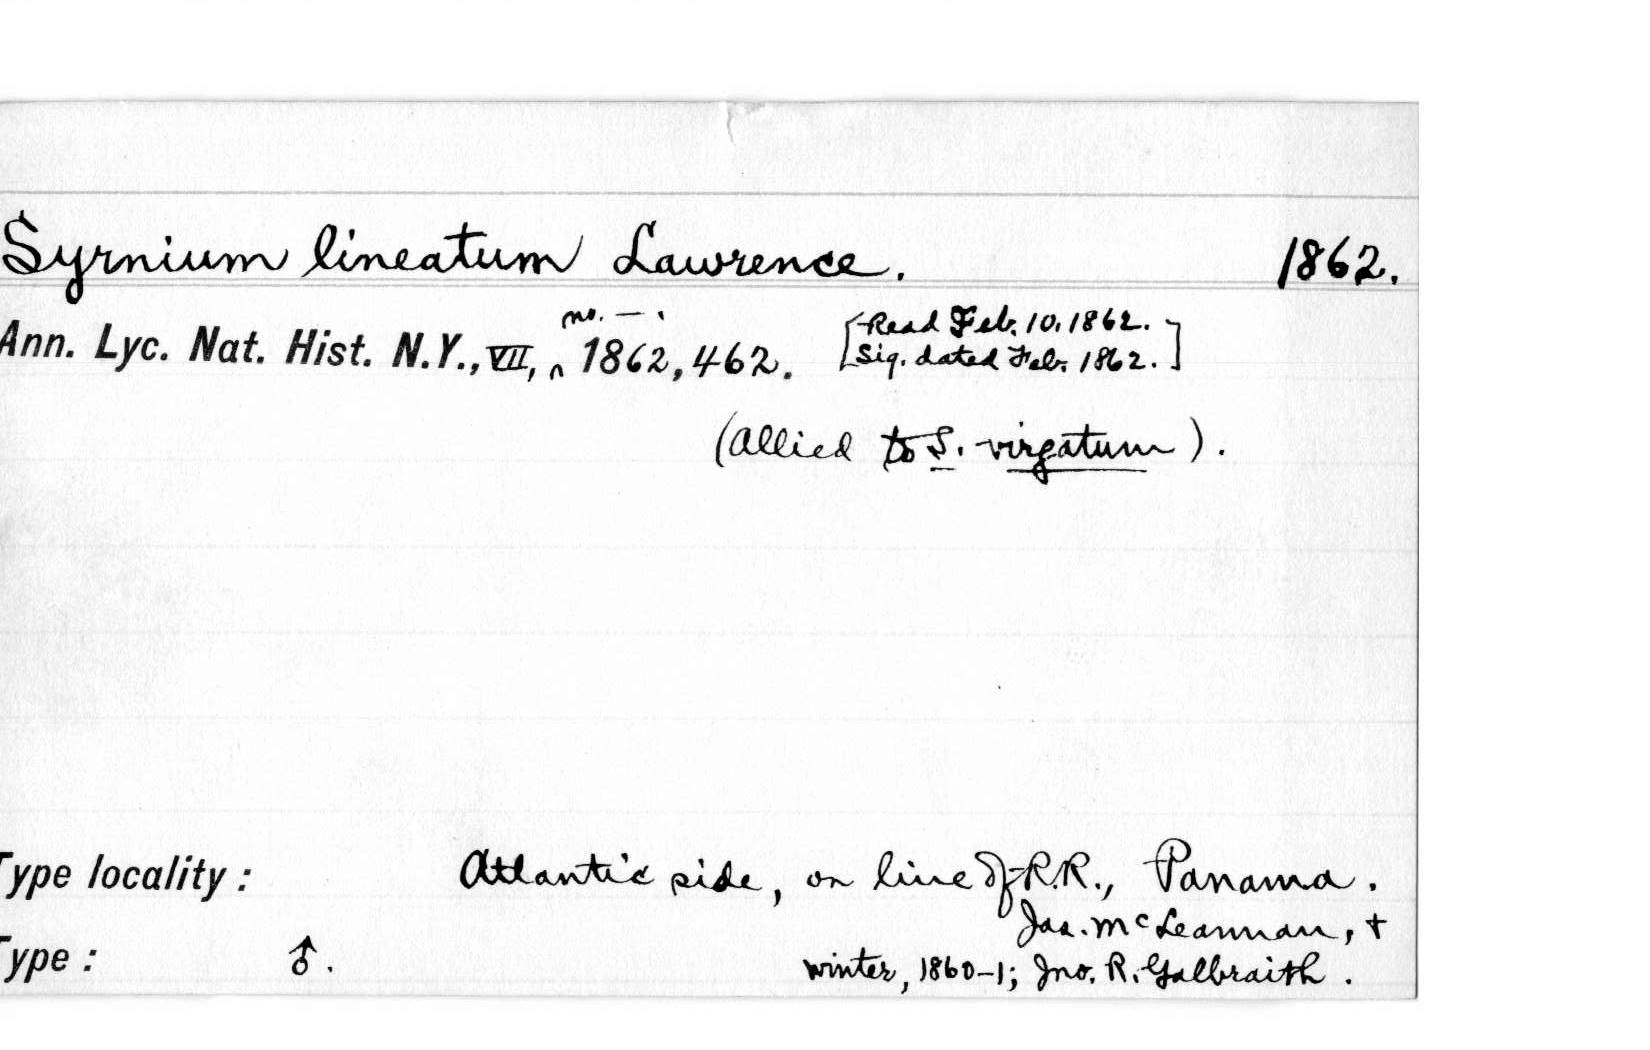 Syrnium lineatum Lawrence. 1862.
no. — .
Ann. Lyc. Nat. Hist. N.Y., VII, ^ 1862, 462. [Read Feb. 10, 1862.
Sig. dated Feb. 1862.]
(allied to S. virgatum).
Type locality: Atlantic side, on line of R.R., Panama.
Jas. McLeannan, +
Type: ♂. winter, 1860-1; Jno. R. Galbraith.